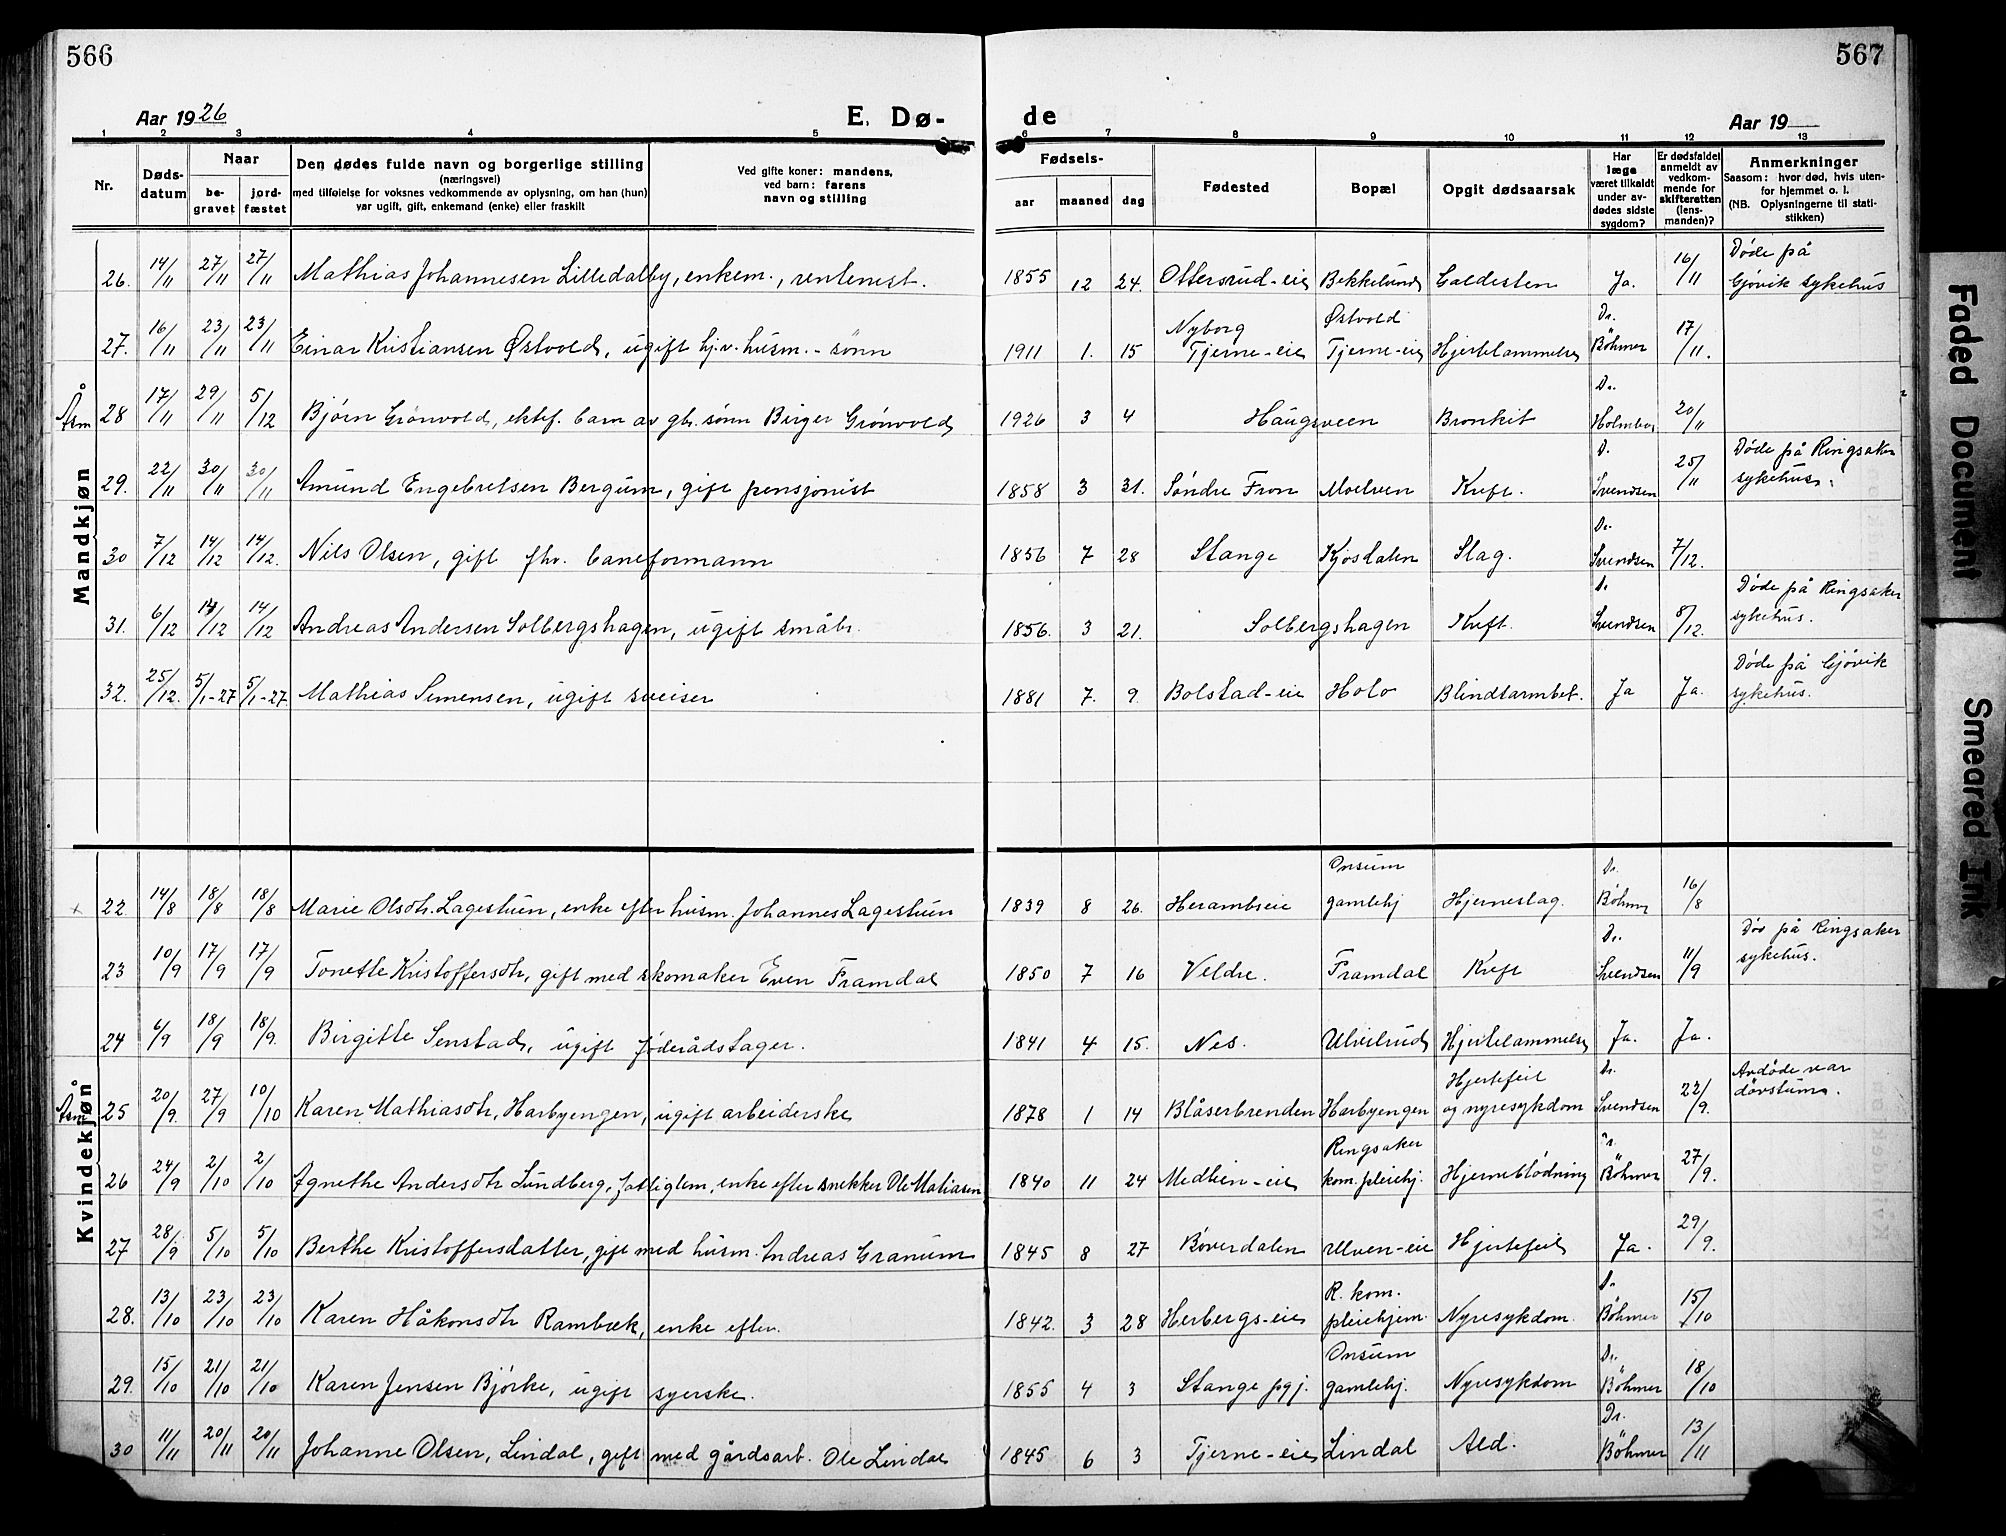 566
567
Aar 1926
E. Dø-
de
Aar 19
1 2 3 4 5 6 7 8 9 10 11 12 13
Nr.
Døds-
datum
Naar
be-
gravet
jord-
fæstet
Den dødes fulde navn og borgerlige stilling
(næringsvei)
med tilføielse for voksnes vedkommende av oplysning, om han (hun)
var ugift, gift, enkemand (enke) eller fraskilt
Ved gifte koner: mandens,
ved barn: farens
navn og stilling
Fødsels-
aar
maaned
dag
Fødested
Bopæl
Opgit dødsaarsak
Har
læge
været tilkaldt
under av-
dødes sidste
sygdom?
Er dødsfaldet
anmeldt av
vedkom-
mende for
skifteretten
(lens-
manden)?
Anmerkninger
Saasom: hvor død, hvis uten-
for hjemmet o. l.
(NB. Oplysningerne til stati-
stikken)
Mandkjøn
26. 14/11 27/11 27/11 Mathias Johannesen Lilledalby, enkem., rentenist. 1855 12 24. Ottersrud-eie Bekkelund Galdesten Ja. 16/11 Døde på
Gjøvik sykehus
27. 16/11 23/11 23/11 Einar Kristiansen Østvold, ugift hj.v. husm.-sønn 1911 1. 15 Nyborg
Tjerne-eie Østvold
Tjerne-eie Hjertelammelse Dr.
Böhmer 17/11.
Åsm 28 17/11 29/11 5/12 Bjørn Grønvold, ektef. barn av gbr. sønn Birger Grønvold 1926 3 4 Haugsveen Bronkit Dr.
Holmboe 20/11
29. 22/11 30/11 30/11 Amund Engebretsen Bergum, gift pensjonist 1858 3 31. Søndre Fron Moelven Kreft. D.
Svendsen 25/11 Døde på Ringsaker
sykehus.
30 7/12 14/12 14/12. Nils Olsen, gift fhv. baneformann 1856 7 28 Stange Kjosdalen Slag. Dr.
Svendsen 7/12.
31. 6/12 14/12 14/12 Andreas Andersen Solbergshagen, ugift småbr. 1856. 3 21. Solbergshagen Kreft. D.
Svendsen 8/12. Døde på Ringsaker
sykehus.
32. 25/12. 5/1-27 5/1-27 Mathias Simensen, ugift sveiser 1881 7. 9. Bolstad-eie Holo Blindtarmbet. Ja Ja. Døde på Gjøvik
sykehus.
Kvindekjøn
x 22. 14/8 18/8 18/8 Marie Olsdtr. Lagestuen, enke efter husm. Johannes Lagestuen 1839 8 26. Herambseie Onsum
gamlehj Hjerneslag. Dr.
Böhmer 16/8
23 10/9 17/9 17/9 Tonette Kristoffersdtr, gift med skomaker Even Framdal 1850 7 16 Veldre. Framdal Kreft Dr.
Svendsen 11/9 Død på Ringsaker
sykehus.
24 6/9 18/9 18/9. Birgitte Senstad, ugift føderådstager. 1841 4 15. Nes. Ulvilrud Hjertelammelse Ja. Ja.
Åsm 25 20/9. 27/9 10/10 Karen Mathiasdtr, Harbyengen, ugift arbeiderske 1878 1 14 Blåserbrenden Harbyengen Hjertefeil
og nyresykdom Dr.
Svendsen 22/9. Avdøde var
døvstum.
26 24/9 2/10 2/10 Agnethe Andersdtr Lundberg, fattiglem, enke efter snekker Ole Matiasen 1840 11 24 Medlien-eie Ringsaker
kom. pleiehj. Hjerneblødning Dr.
Böhmer 27/9.
27 28/9 5/10 5/10 Berthe Kristoffersdatter, gift med husm. Andreas Granum 1845 8 27 Bøverdalen Ulven-eie Hjertefeil Ja. 29/9.
28. 13/10 23/10 23/10 Karen Håkonsdtr Rambæk, enke efter. 1842. 3 28 Herbergs-eie R. kom.
pleiehjem. Nyresykdom. D.
Böhmer 15/10
29. 15/10 21/10 21/10 Karen Jensen Bjørke, ugift syerske. 1855 4 3 Stange pgj. Onsum
gamlehj. Nyresykdom Dr.
Böhmer 18/10
30 11/11 20/11 20/11 Johanne Olsen, Lindal, gift med gårdsarb. Ole Lindal 1845 6 3 Tjerne-eie Lindal Ald. Dr.
Böhmer 13/11
Faded Document
Smeared Ink